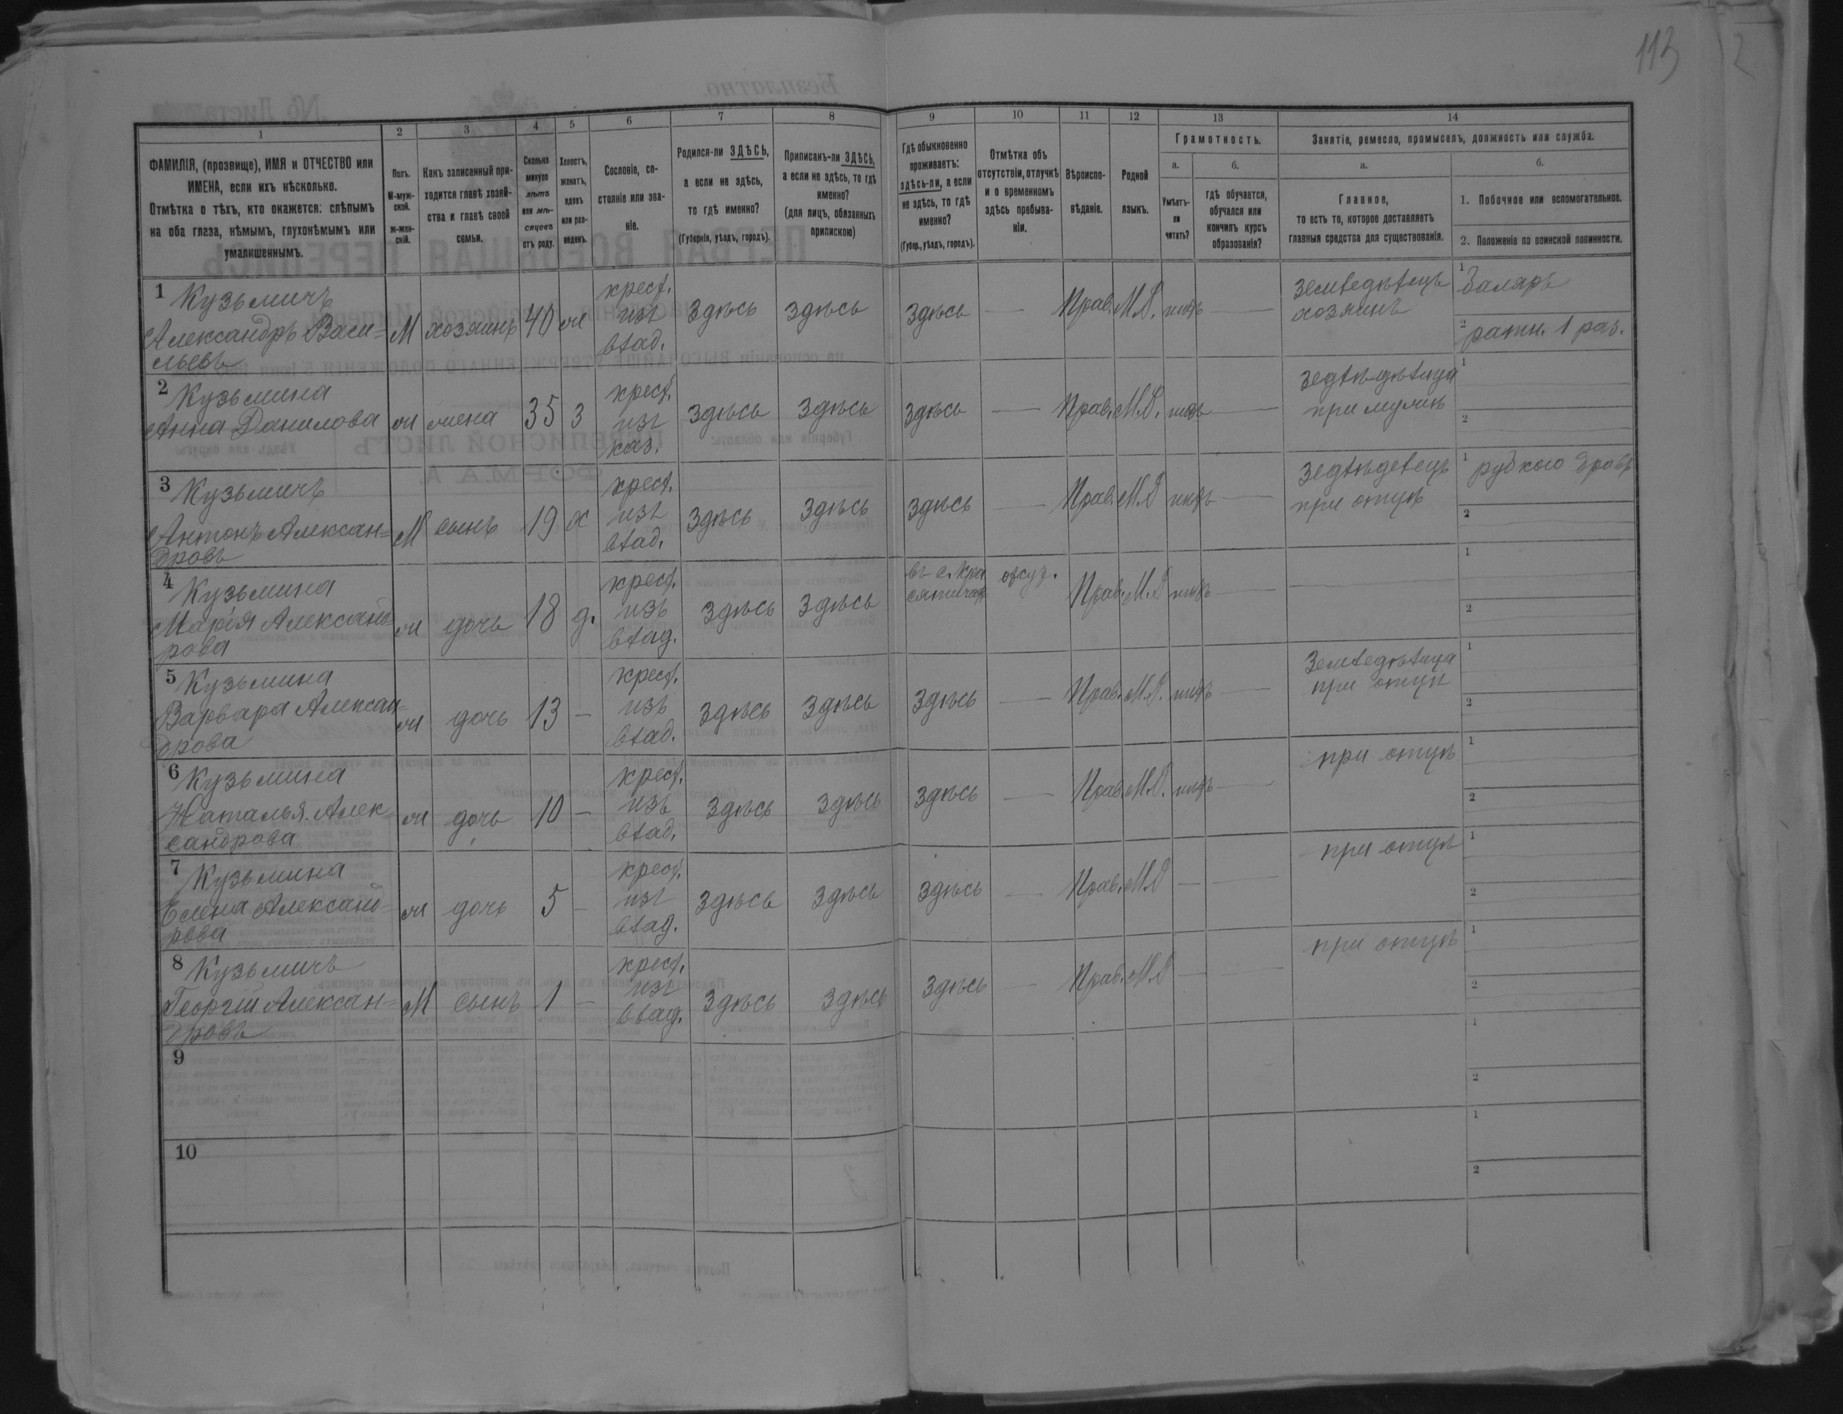 113
2
1 2 3 4 5 6 7 8 9 10 11 12 13 14
ФАМИЛІЯ, (прозвище), ИМЯ и ОТЧЕСТВО или ИМЕНА, если ихъ нѣсколько.
Отмѣтка о тѣхъ, кто окажется: слѣпымъ на оба глаза, нѣмымъ, глухонѣмымъ или умалишеннымъ.
Полъ. М-мужской. ж-женскій.
Какъ записанный приходится главѣ хозяйства и главѣ своей семьи.
Сколько минуло лѣтъ или мѣсяцевъ отъ роду.
Холостъ, женатъ, вдовъ или разведенъ.
Сословіе, состояніе или званіе.
Родился-ли ЗДѢСЬ, а если не здѣсь, то гдѣ именно?
(Губернія, уѣздъ, городъ).
Приписанъ-ли ЗДѢСЬ, а если не здѣсь, то гдѣ именно?
(для лицъ, обязанныхъ припискою)
Гдѣ обыкновенно проживаетъ: здѣсь-ли, а если не здѣсь, то гдѣ именно?
(Губер., уѣздъ, городъ).
Отмѣтка объ отсутствіи, отлучкѣ и о временномъ здѣсь пребываніи.
Вѣроисповѣданіе.
Родной языкъ.
Грамотность.
а. Умѣетъ-ли читать?
б. гдѣ обучается, обучался или кончилъ курсъ образованія?
Занятіе, ремесло, промыселъ, должность или служба.
а. Главное, то есть то, которое доставляетъ главныя средства для существованія.
б. 1. Побочное или вспомогательное.
2. Положеніе по воинской повинности.
1 Кузьмичъ Александръ Васильевъ М хозяинъ 40 ж крест. изъ влад. здѣсь здѣсь здѣсь — Прав. М.Р. нѣтъ — земледѣлецъ хозяинъ 1 2 ратн. 1 раз.
2 Кузьмина Анна Данилова ж жена 35 з крест. изъ каз. здѣсь здѣсь здѣсь — Прав. М.Р. нѣтъ — 1 2
3 Кузьмичъ Антонъ Александровъ М сынъ 19 х крест. изъ влад. здѣсь здѣсь здѣсь — Прав. М.Р нѣтъ — при отцѣ 1 2
4 Кузьмина Марія Александрова ж дочь 18 д. крест. изъ влад. здѣсь здѣсь отсут. Прав. М.Р нѣтъ — — 1 2
5 Кузьмина Варвара Александрова ж дочь 13 — крест. изъ влад. здѣсь здѣсь здѣсь — Прав. М.Р. нѣтъ — земледѣлица при отцѣ 1 2
6 Кузьмина Наталья Александрова ж дочь 10 — крест. изъ влад. здѣсь здѣсь здѣсь — Прав. М.Р. нѣтъ — при отцѣ 1 2
7 Кузьмина Елена Александрова ж дочь 5 — крест. изъ влад. здѣсь здѣсь здѣсь — Прав. М.Р — — при отцѣ 1 2
8 Кузьмичъ Георгій Александровъ М сынъ 1 — крест. изъ влад. здѣсь здѣсь здѣсь — Прав. М.Р — — при отцѣ 1 2
9 1 2
10 1 2